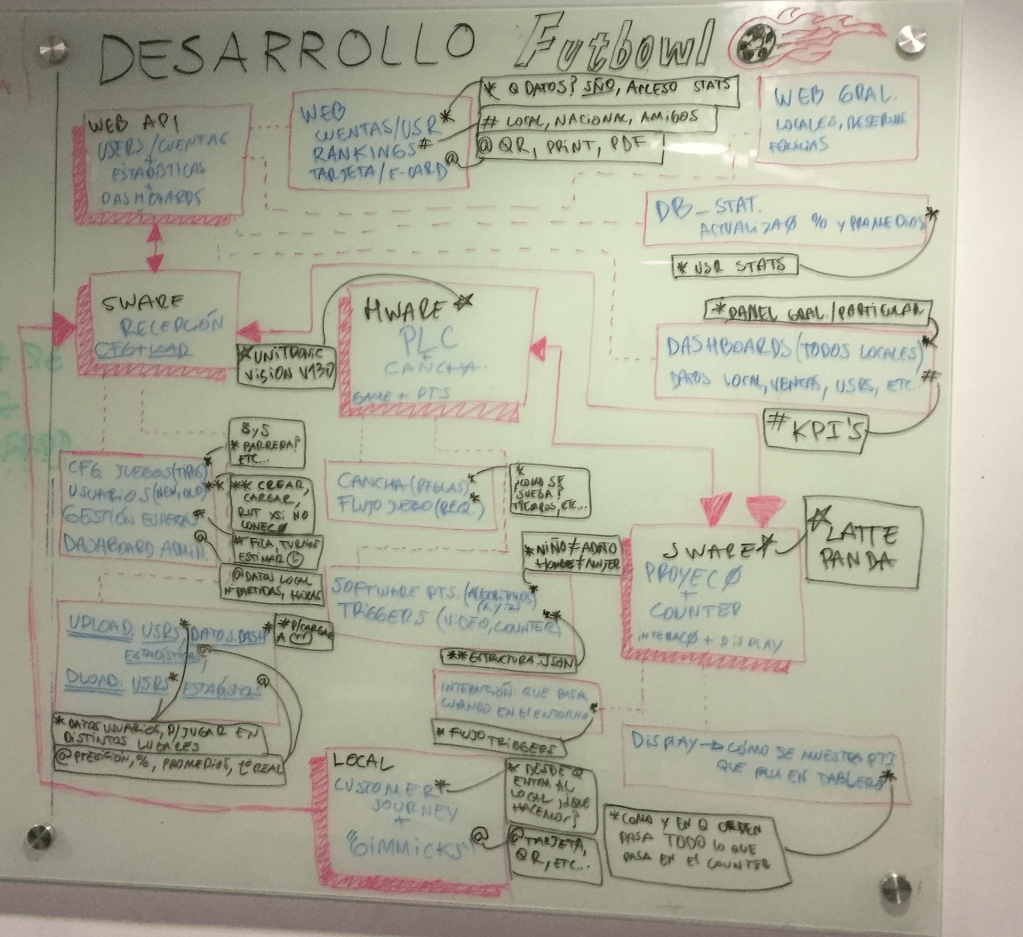 DESARROLLO Futbowl
WEB API
USERS/CUENTAS
+
ESTADÍSTICAS
+
DASHBOARDS
WEB
CUENTAS/USR*
RANKINGS#
TARJETA/E-CARD@
* Q DATOS? SÑO, ACCESO STATS
# LOCAL, NACIONAL, AMIGOS
@ QR, PRINT, PDF
WEB GRAL.
LOCALES, RESERVAS
DB_STAT.
ACTUALIZAØ % Y PROMEDIOS*
* USR STATS
SWARE
RECEPCIÓN
CFG+LOAD
HWARE
PLC
+
CANCHA
GAME + PTS
UNITRONIC
VISION V130
* PANEL GRAL/PARTICULAR
DASHBOARDS (TODOS LOCALES)*
DATOS LOCAL, VENTAS, USRS, ETC #
# KPI'S
CFG JUEGOS (TIPOS)*
USUARIOS (NEW, OLD)**
GESTIÓN ESPERAS*
DASHBOARD ADMIN.@
* BARRERA?
ETC...
** CREAR,
CARGAR,
RUT XSI NO
CONECØ
* FILA, TURNOS
ESTIMAR
@ DATOS LOCAL
Nº PARTIDAS, HORAS
CANCHA (REGLAS)*
FLUJO JUEGO (REQ.)*
*
¿COMO SE
JUEGA?
TICKETS, ETC...
* NIÑO ≠ ADULTO
HOMBRE ≠ MUJER
SOFTWARE PTS. (ALGORITMOS)*
(X,Y,Z)
TRIGGERS (VIDEO, COUNTER)**
** ESTRUCTURA.JSON
SWARE*
PROYECØ
+
COUNTER
INTERACØ + DISPLAY
LATTE
PANDA
UPLOAD: USRS* DATOS.DASH*
ESTADÍSTICAS@
DLOAD: USRS* ESTADÍSTICAS@
* P/CARGAR
A
* DATOS USUARIOS, P/JUGAR EN
DISTINTOS LUGARES
@ PRECISIÓN, %, PROMEDIOS, tº REAL
INTERACCIÓN: QUE PASA
CUANDO EN EL ENTORNO*
* FLUJO TRIGGERS
DISPLAY → CÓMO SE MUESTRA PTS
QUE PASA EN TABLERO*
* COMO Y EN Q ORDEN
PASA TODO LO QUE
PASA EN EL COUNTER
LOCAL
CUSTOMER*
JOURNEY
+
"GIMMICKS"@
* DESDE Q
ENTRA AL
LOCAL ¿QUE
HACEMOS?
@ TARJETA,
QR, ETC...